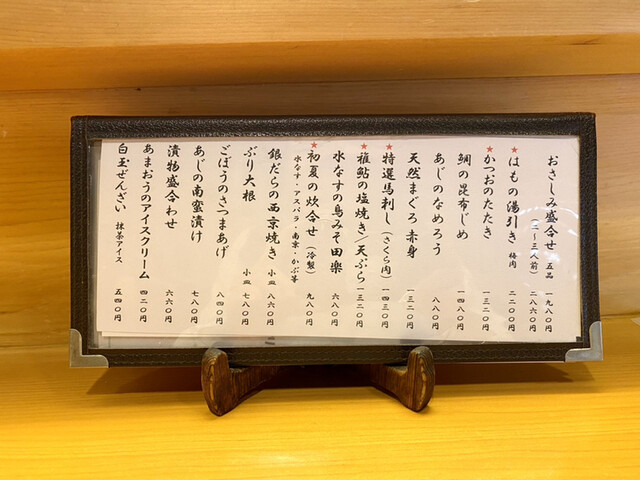 おさしみ盛合せ 五品 一九八〇円
（二～三人前） 二八六〇円
★はもの湯引き 梅肉 二二〇〇円
★かつおのたたき 一三二〇円
鯛の昆布じめ 一四八〇円
あじのなめろう 八八〇円
天然まぐろ 赤身 一三二〇円
★特選馬刺し（さくら肉） 一四三〇円
★稚鮎の塩焼き／天ぷら 一三二〇円
水なすの鳥みそ田楽 六八〇円
★初夏の炊合せ（冷製） 九八〇円
水なす・アスパラ・南京・かぶ等
銀だらの西京焼き 小皿 八六〇円
ぶり大根 小皿 七八〇円
ごぼうのさつまあげ 八四〇円
あじの南蛮漬け 七八〇円
漬物盛合わせ 六六〇円
あまおうのアイスクリーム 四二〇円
白玉ぜんざい 抹茶アイス 五四〇円